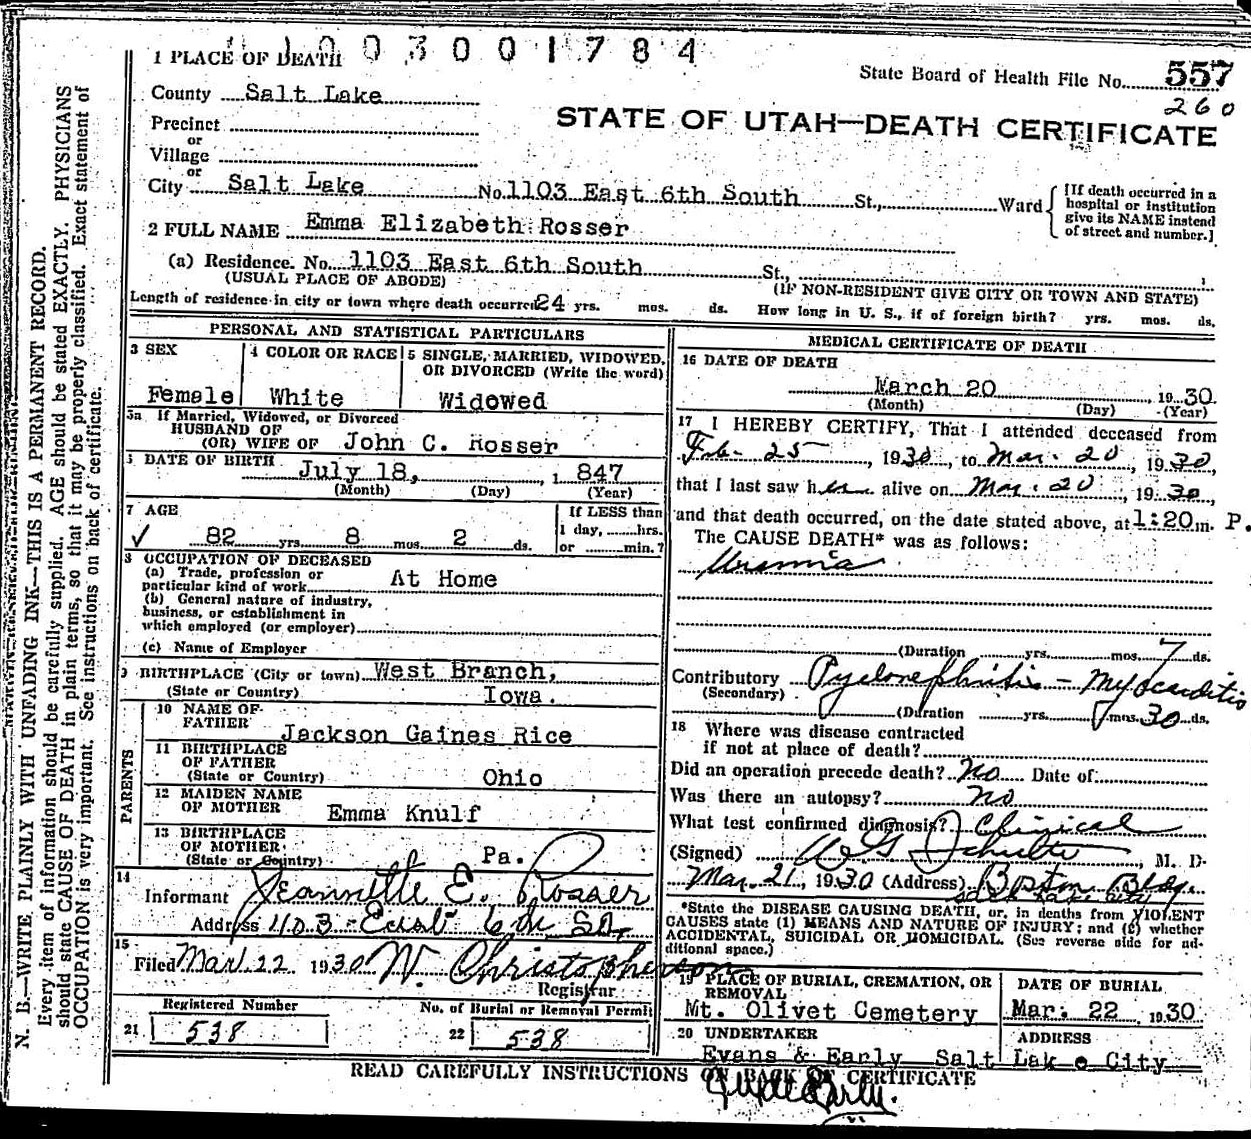 1003001784
1 PLACE OF DEATH
State Board of Health File No. 557
260
County Salt Lake
STATE OF UTAH—DEATH CERTIFICATE
Precinct
or
Village
or
City Salt Lake No. 1103 East 6th South St., Ward
[If death occurred in a
hospital or institution
give its NAME instead
of street and number.]
2 FULL NAME Emma Elizabeth Rosser
(a) Residence. No. 1103 East 6th South St.,
(USUAL PLACE OF ABODE) (IF NON-RESIDENT GIVE CITY OR TOWN AND STATE)
Length of residence in city or town where death occurred 24 yrs. mos. ds. How long in U. S., if of foreign birth? yrs. mos. ds.
PERSONAL AND STATISTICAL PARTICULARS
3 SEX
Female
4 COLOR OR RACE
White
5 SINGLE, MARRIED, WIDOWED,
OR DIVORCED (Write the word)
Widowed
5a If Married, Widowed, or Divorced
HUSBAND OF
(OR) WIFE OF John C. Rosser
DATE OF BIRTH July 18, 1 847
(Month) (Day) (Year)
7 AGE
✓ 82 yrs. 8 mos. 2 ds.
If LESS than
1 day, hrs.
or min.?
8 OCCUPATION OF DECEASED
(a) Trade, profession or
particular kind of work At Home
(b) General nature of industry,
business, or establishment in
which employed (or employer)
(c) Name of Employer
9 BIRTHPLACE (City or town) West Branch,
(State or Country) Iowa.
PARENTS
10 NAME OF
FATHER
Jackson Gaines Rice
11 BIRTHPLACE
OF FATHER
(State or Country) Ohio
12 MAIDEN NAME
OF MOTHER Emma Knulf
13 BIRTHPLACE
OF MOTHER
(State or Country) Pa.
14
Informant Jeannette E. Rosser
Address 1103 - East 6th So.
15
Filed Mar. 22 1930 W. Christopherson
Registrar
Registered Number
21 538
No. of Burial or Removal Permit
22 538
MEDICAL CERTIFICATE OF DEATH
16 DATE OF DEATH
March 20 , 1930.
(Month) (Day) (Year)
17 I HEREBY CERTIFY, That I attended deceased from
Feb. 25 , 1930, to Mar. 20 , 1930
that I last saw her alive on Mar. 20 , 1930,
and that death occurred, on the date stated above, at 1:20 m. P.
The CAUSE DEATH* was as follows:
Uraemia
(Duration yrs. mos. 7 ds.
Contributory Pyelonephritis - Myocarditis
(Secondary)
(Duration yrs. mos. 30 ds.
18 Where was disease contracted
if not at place of death?
Did an operation precede death? No Date of
Was there an autopsy? no
What test confirmed diagnosis? Clinical
(Signed) W G Schulte , M. D.
Mar. 21, 1930 (Address) Boston Bldg.
Salt Lake City
*State the DISEASE CAUSING DEATH, or, in deaths from VIOLENT
CAUSES state (1) MEANS AND NATURE OF INJURY; and (2) whether
ACCIDENTAL, SUICIDAL OR HOMICIDAL. (See reverse side for ad-
ditional space.)
19 PLACE OF BURIAL, CREMATION, OR
REMOVAL
Mt. Olivet Cemetery
DATE OF BURIAL
Mar. 22 , 1930.
20 UNDERTAKER
ADDRESS
Evans & Early Salt Lak e City
READ CAREFULLY INSTRUCTIONS ON BACK OF CERTIFICATE
N. B.—WRITE PLAINLY WITH UNFADING INK—THIS IS A PERMANENT RECORD.
Every item of information should be carefully supplied. AGE should be stated EXACTLY. PHYSICIANS
should state CAUSE OF DEATH in plain terms, so that it may be properly classified. Exact statement of
OCCUPATION is very important. See instructions on back of certificate.